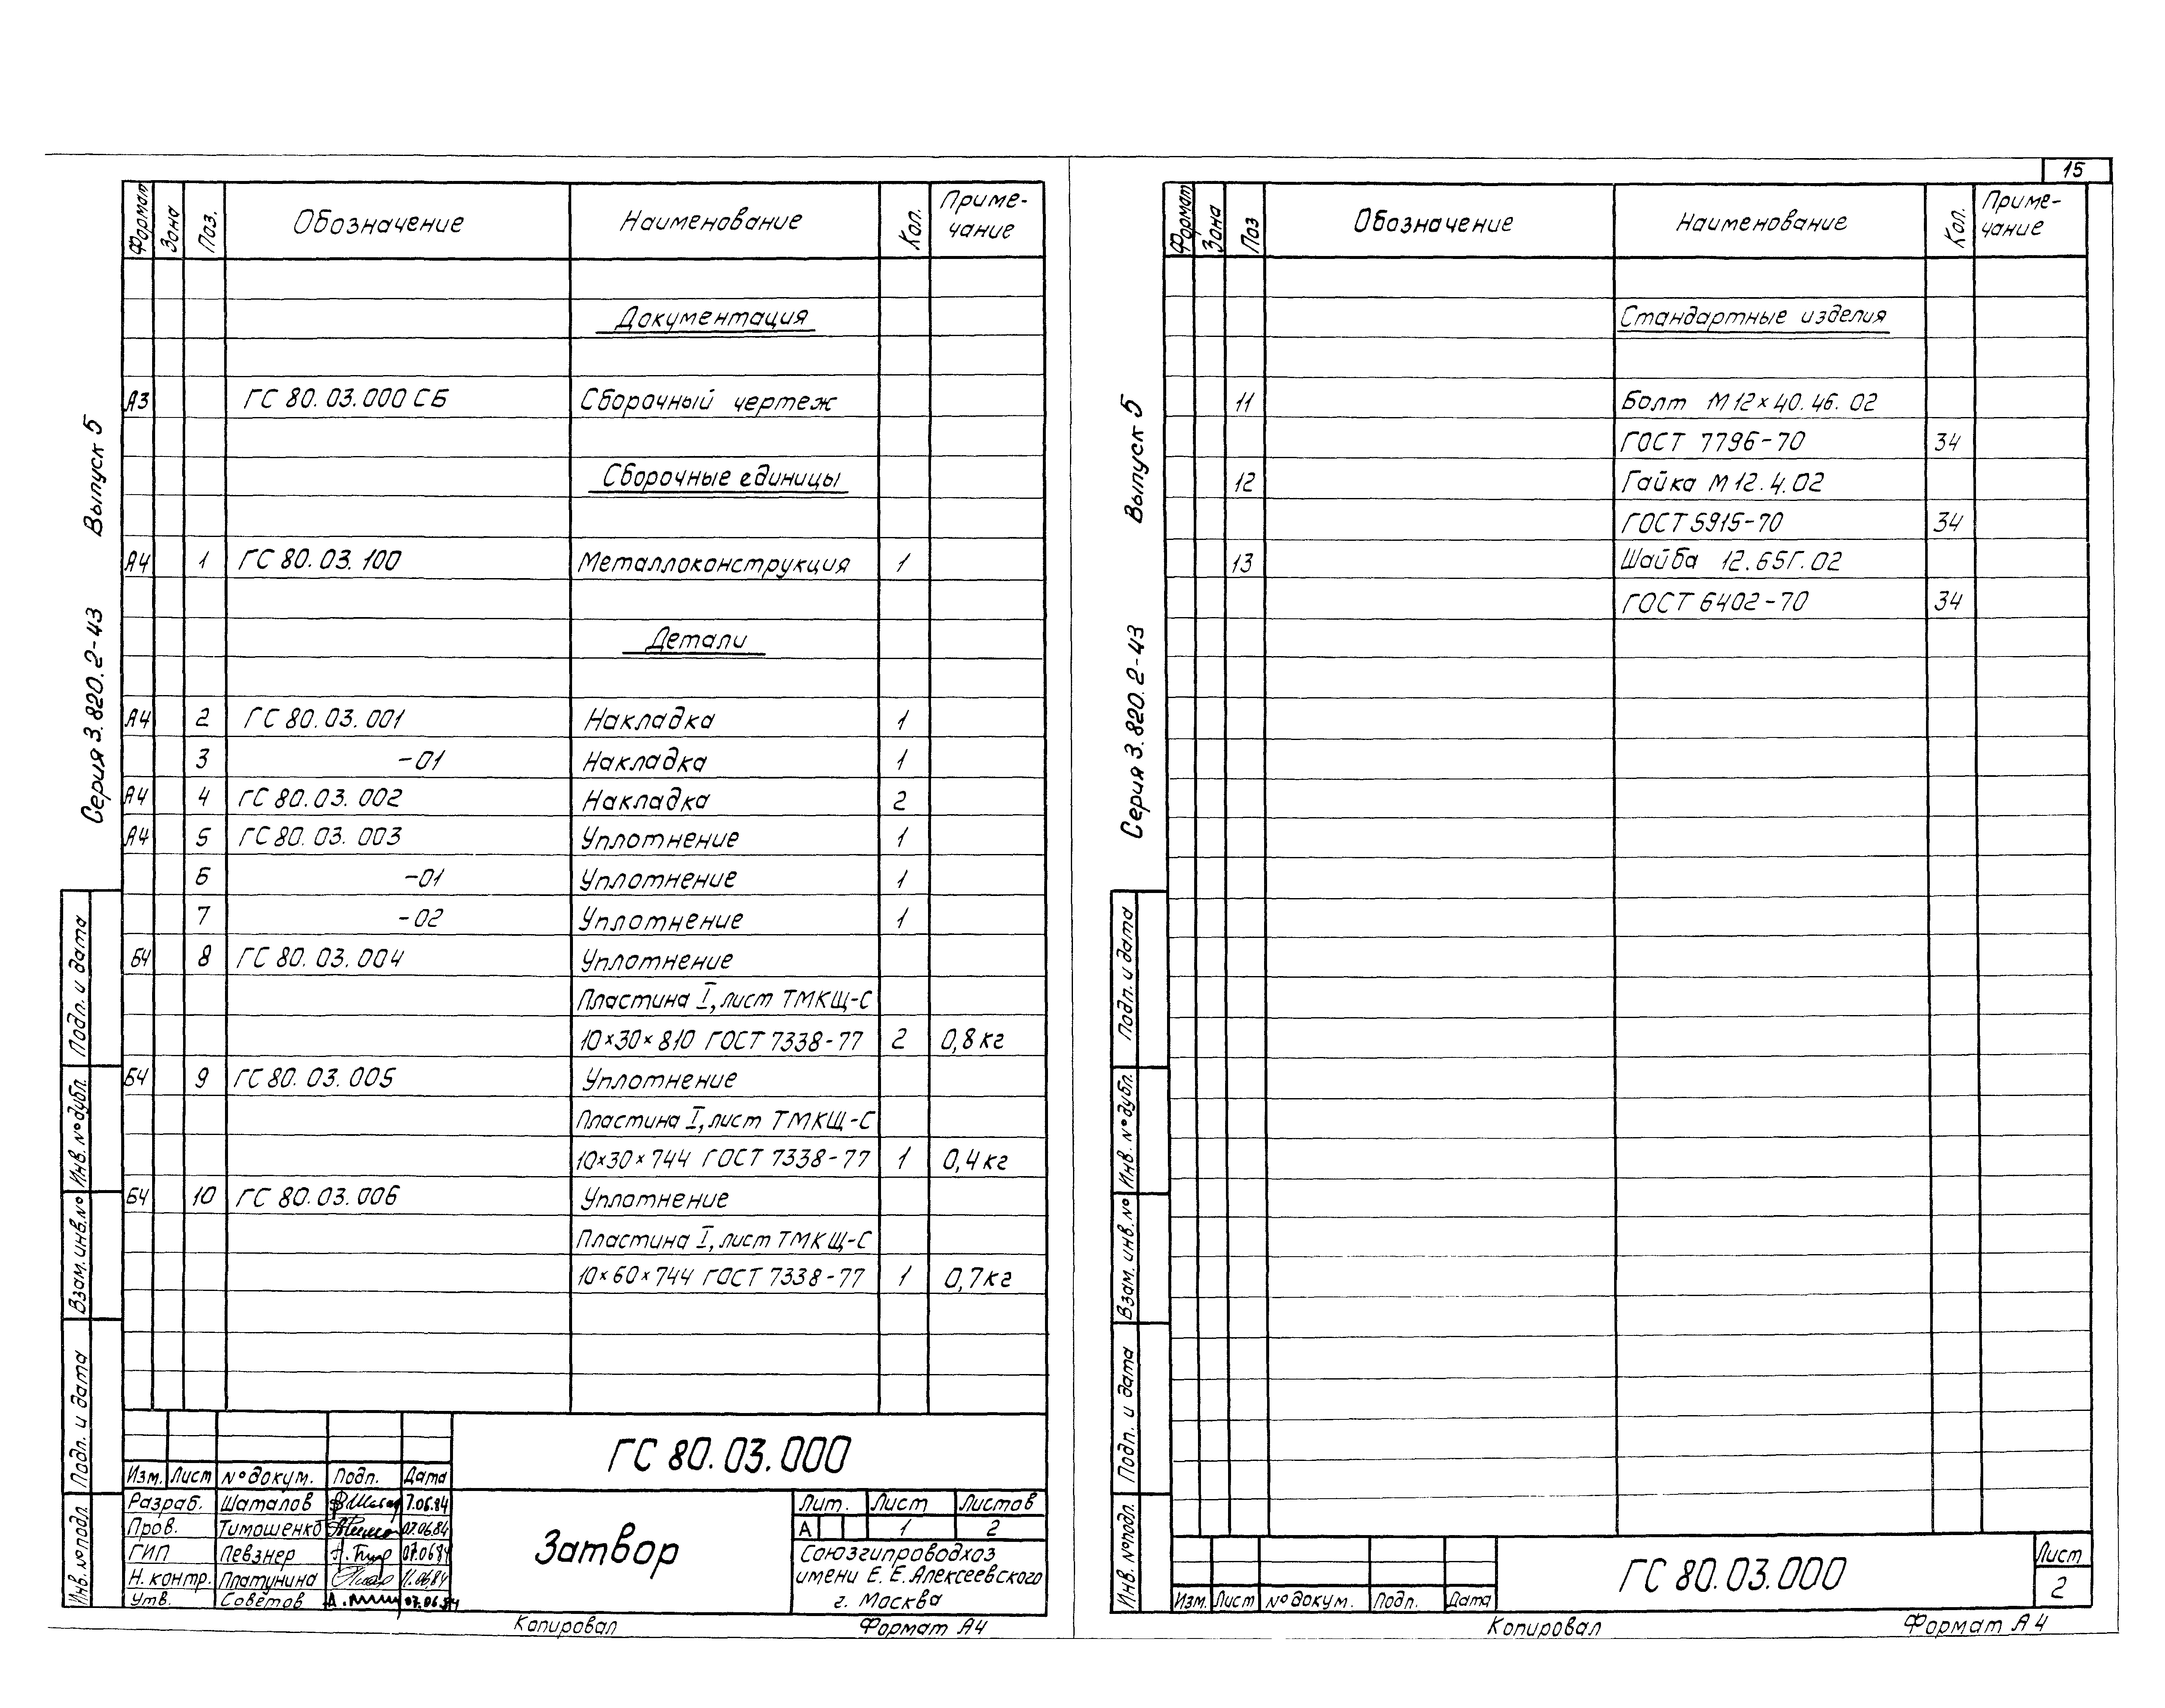 15
Формат Зона Поз. Обозначение Наименование Кол. Примечание
Документация
А3 ГС 80.03.000 СБ Сборочный чертеж
Сборочные единицы
А4 1 ГС 80.03.100 Металлоконструкция 1
Детали
А4 2 ГС 80.03.001 Накладка 1
3 -01 Накладка 1
А4 4 ГС 80.03.002 Накладка 2
А4 5 ГС 80.03.003 Уплотнение 1
6 -01 Уплотнение 1
7 -02 Уплотнение 1
Б4 8 ГС 80.03.004 Уплотнение
Пластина I, лист ТМКЩ-С
10×30×810 ГОСТ 7338-77 2 0,8 кг
Б4 9 ГС 80.03.005 Уплотнение
Пластина I, лист ТМКЩ-С
10×30×744 ГОСТ 7338-77 1 0,4 кг
Б4 10 ГС 80.03.006 Уплотнение
Пластина I, лист ТМКЩ-С
10×60×744 ГОСТ 7338-77 1 0,7 кг
Серия 3.820.2-43 Выпуск 5
Подп. и дата
Инв. № дубл.
Взам. инв. №
Подп. и дата
Инв. № подл.
ГС 80.03.000
Изм. Лист № докум. Подп. Дата
Разраб. Шаталов 7.06.84
Пров. Тимошенко 07.06.84
ГИП Певзнер 07.06.84
Н. контр. Платунина 11.06.84
Утв. Советов 07.06.84
Затвор
Лит. Лист Листов
А 1 2
Союзгипроводхоз
имени Е. Е. Алексеевского
г. Москва
Копировал Формат А4
Формат Зона Поз Обозначение Наименование Кол. Примечание
Стандартные изделия
11 Болт М12×40.46.02
ГОСТ 7796-70 34
12 Гайка М12.4.02
ГОСТ 5915-70 34
13 Шайба 12.65Г.02
ГОСТ 6402-70 34
Серия 3.820.2-43 Выпуск 5
Подп. и дата
Инв. № дубл.
Взам. инв. №
Подп. и дата
Инв. № подл.
Изм. Лист № докум. Подп. Дата
ГС 80.03.000
Лист
2
Копировал Формат А4